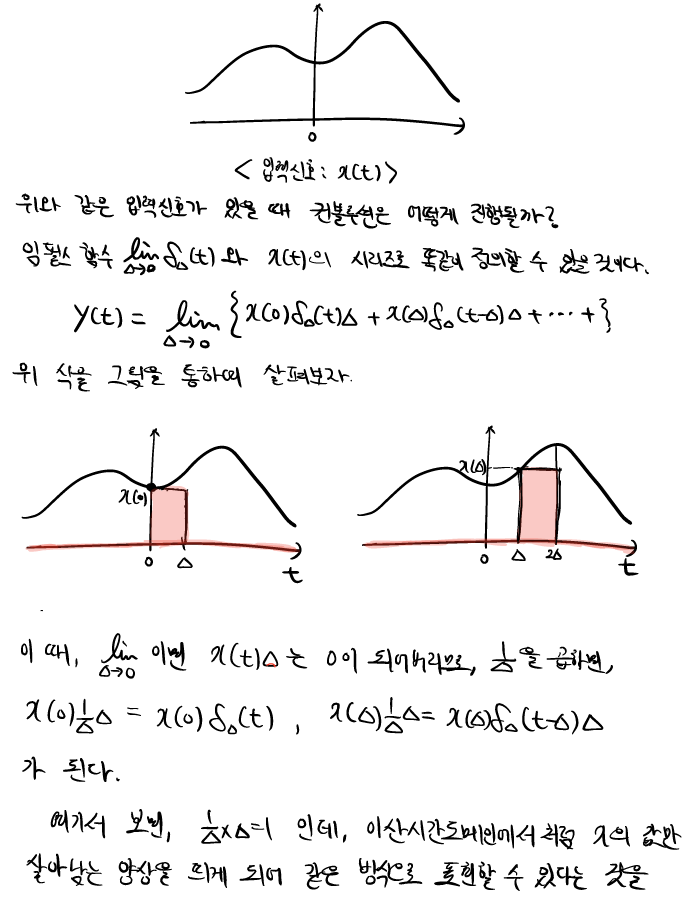 0
< 입력신호: x(t) >
위와 같은 입력신호가 있을 때 컨볼루션은 어떻게 진행될까?
임펄스 함수 lim Δ→0 δΔ(t) 와 x(t)의 시리즈로 똑같이 정의할 수 있을것이다.
y(t) = lim Δ→0 { x(0)δΔ(t)Δ + x(Δ)δΔ(t-Δ)Δ + ⋯ + }
위 식을 그림을 통하여 살펴보자.
x(0) 0 Δ t
x(Δ) 0 Δ 2Δ t
이 때, lim Δ→0 이면 x(t)Δ는 0이 되어버리므로, 1/Δ을 곱하면,
x(0) 1/Δ Δ = x(0) δΔ(t) , x(Δ) 1/Δ Δ = x(Δ)δΔ(t-Δ)Δ
가 된다.
여기서 보면, 1/Δ×Δ=1 인데, 이산시간도메인에서 처럼 x의 값만
살아남는 양상을 띄게 되어 같은 방식으로 표현할 수 있다는 것을